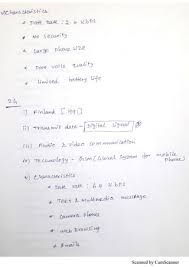 Characteristics
* Data rate : 2.4 Kbps
* No security
* Large phone size
* Poor voice quality
* Limited battery life
2G
i) Finland [1991]
ii) Transmit data - Digital signal
iii) Audio & video communication
iv) Technology - Gsm (Global system for mobile
Phone)
v) Characteristics
* Data rate : 64 Kbps
* Text & multimedia message
* Camera phones
* Web browsing
* Emails
Scanned by CamScanner